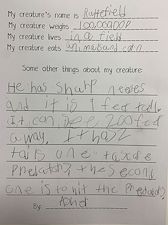 My creature's name is Ruttefield
My creature weighs 100,000,000
My creature lives in a field
My creature eats animals and corn
Some other things about my creature:
He has sharp
and it is 1 feet tall.
It can see 200 feet
away. It has 2
tails one to
predators, the second
one is to hit the predators,
By: